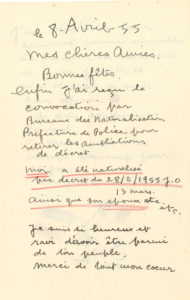 le 8-Avril 55
Mes chères Amies.
Bonnes fêtes.
enfin j'ai reçu le
convocation par
Bureaux des Naturalisation
Préfecture de Police pour
retirer les
de décret
Moi a été naturalisé
par décret du 28/2/1955 J.O
13 mars.
Ainsi que son épouse etc.
etc.
Je suis si heureux et
ravi d'avoir être parmi
de son peuple.
Merci de tout mon cœur